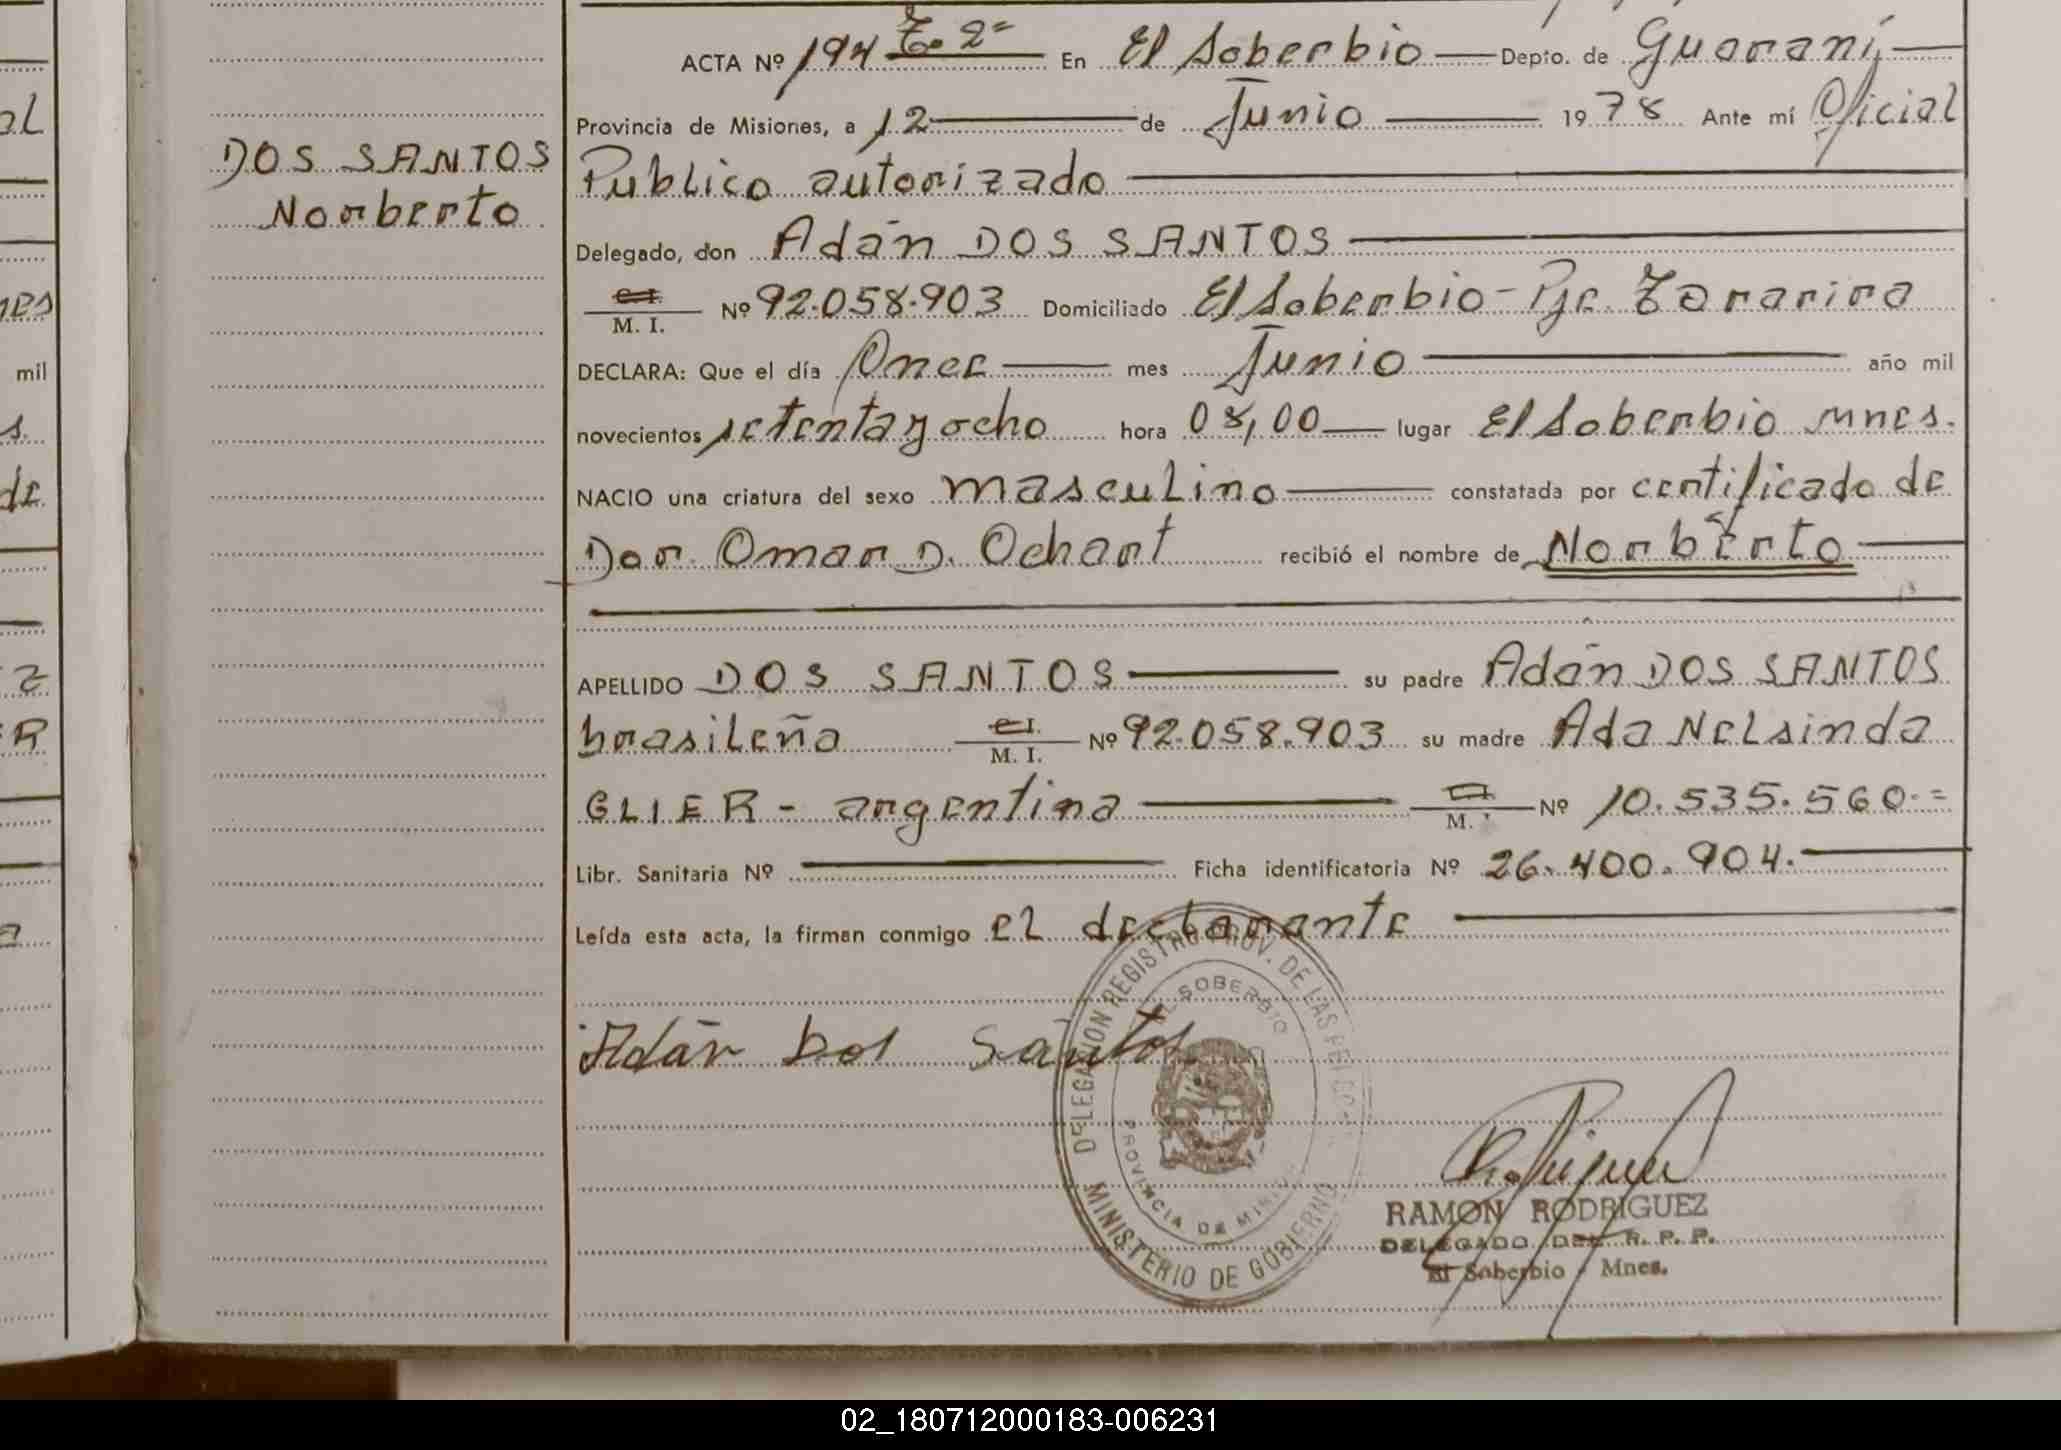 al
nes
mil
s.
de
z
ER
a
DOS SANTOS
Norberto
ACTA Nº 194 To. 2º En El Soberbio Depto. de Guaraní
Provincia de Misiones, a 12 de Junio 1978 Ante mí Oficial
Publico autorizado
Delegado, don Adán DOS SANTOS
C.I. M. I. Nº 92.058.903 Domiciliado El Soberbio - Pje.
DECLARA: Que el día Once mes Junio año mil
novecientos setenta y ocho hora 08,00 lugar El Soberbio Mnes.
NACIO una criatura del sexo masculino constatada por certificado de
Dor. Omar D. Ochart recibió el nombre de Norberto
APELLIDO DOS SANTOS su padre Adán DOS SANTOS
brasileña C.I. M. I. Nº 92.058.903 su madre Ada Nelsinda
GLIER - argentina M. I Nº 10.535.560.=
Libr. Sanitaria Nº Ficha identificatoria Nº 26.400.904.
Leída esta acta, la firman conmigo el declarante
Adán Dos Santos
DELEGACION REGISTRO PROV. DE LAS PERSONAS
EL SOBERBIO
PROVINCIA DE MISIONES
MINISTERIO DE GOBIERNO
RAMON RODRIGUEZ
DELEGADO DEL R. P. P.
El Soberbio - Mnes.
02_180712000183-006231